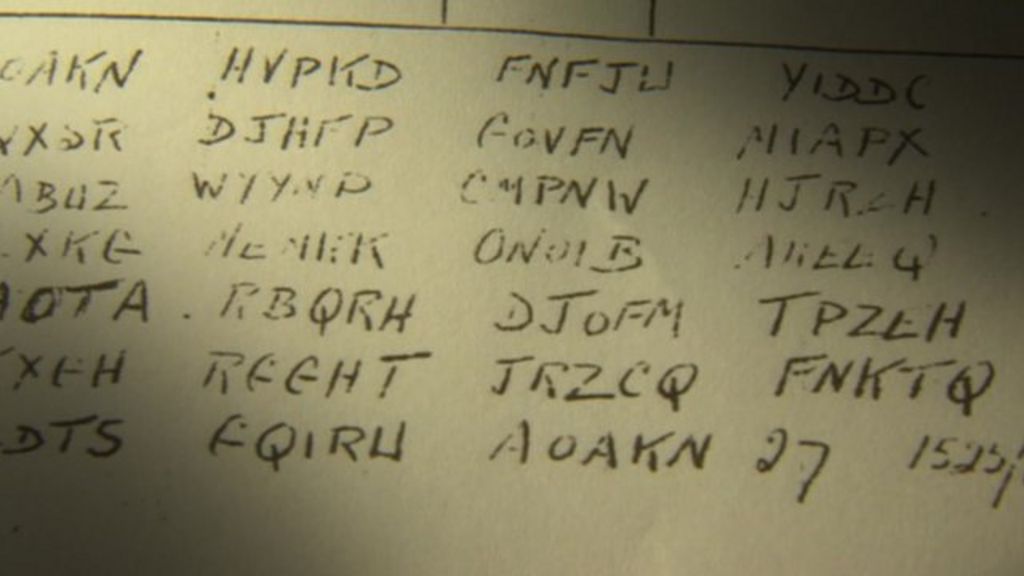 OAKN HVPKD FNFJU YIDDC
XSR DJHFP GOVFN MIAPX
ABUZ WYYNP CMPNW HJRZH
XKG MEMKK ONOIB AKEEQ
AOTA RBQRH DJOFM TPZEH
XGH RGGHT JRZCQ FNKTQ
DTS GQIRU AOAKN 27 1525/